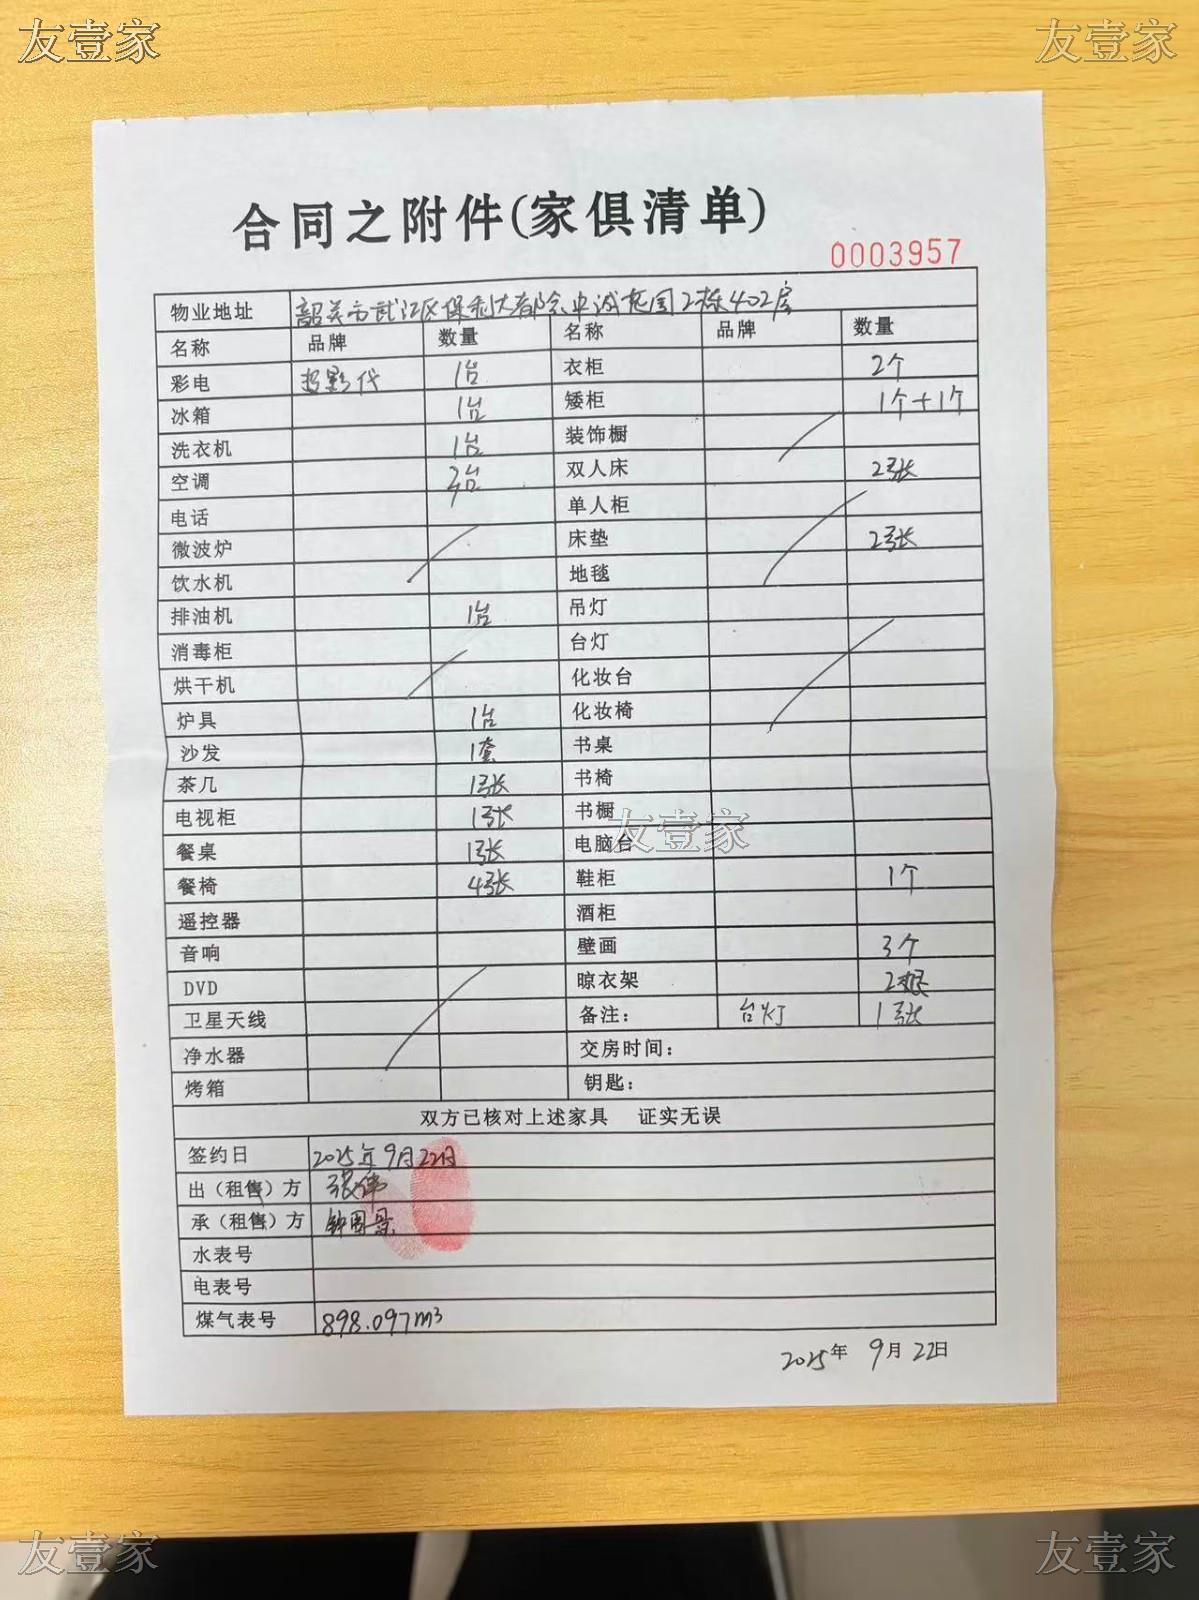 友壹家 友壹家
合同之附件(家俱清单)
0003957
物业地址 韶关市武江区保利大都会中诚花园2栋402房
名称 品牌 数量 名称 品牌 数量
彩电 1台 衣柜 2个
冰箱 1台 矮柜 1个+1个
洗衣机 1台 装饰橱
空调 台 双人床 2张
电话 单人柜
微波炉 床垫 2张
饮水机 地毯
排油机 1台 吊灯
消毒柜 台灯
烘干机 化妆台
炉具 1台 化妆椅
沙发 1套 书桌
茶几 1张 书椅
电视柜 1张 书橱
友壹家
餐桌 1张 电脑台
餐椅 4张 鞋柜 1个
遥控器 酒柜
音响 壁画 3个
DVD 晾衣架 2根
卫星天线 备注： 台灯 1张
净水器 交房时间：
烤箱 钥匙：
双方已核对上述家具 证实无误
签约日 2025年9月22日
出（租售）方 张伟
承（租售）方 钟
水表号
电表号
煤气表号 898.097m³
2025年 9月 22日
友壹家 友壹家